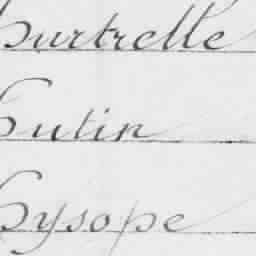 Hurtrelle
Hutin
Hysope